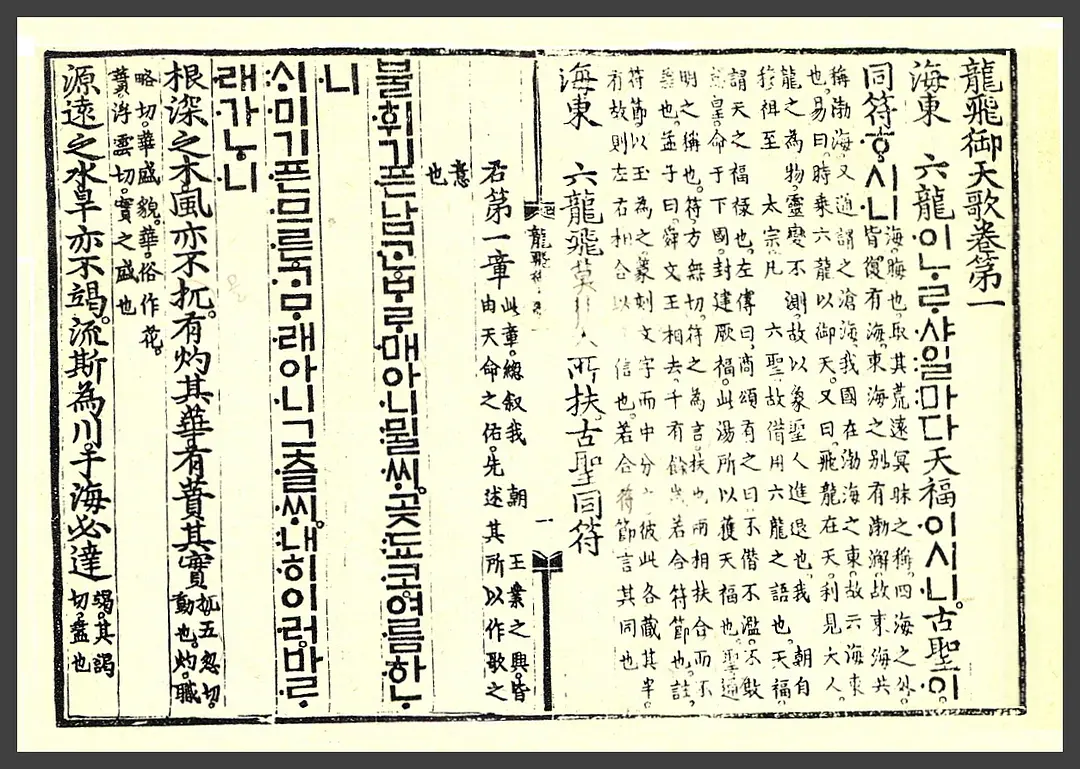 龍飛御天歌卷第一
海東 六龍이ᄂᆞᄅᆞ샤일마다天福이시니。古聖이。
同符ᄒᆞ시니
海。晦也。取其荒遠冥昧之稱。四海之外。
皆復有海。東海之別有渤澥。故東海共
稱渤海。又通謂之滄海。我國在渤海之東。故云海東
也。易曰。時乘六龍以御天。又曰。飛龍在天。利見大人。
龍之為物。靈變不測。故以象聖人進退也。我 朝自
穆祖至 太宗。凡 六聖。故借用六龍之語也。天福。
謂天之福祿也。左傳曰。商頌有之曰。不僭不濫。不敢
怠皇。命于下國。封建厥福。此湯所以獲天福也。聖。通
明之稱也。符。方無切。符之為言。扶也。兩相扶合而不
差也。孟子曰。舜文王相去千有餘歲。若合符節也。註。
符節。以玉為之。篆刻文字而中分之。彼此各藏其半。
有故則左右相合以 信也。若合符節。言其同也
海東 六龍飛莫 所扶。古聖同符
龍飛
一
右第一章
此章。總叙我 朝 王業之興。皆
由天命之佑。先述其所以作歌之
意
也
불휘기픈남ᄀᆞᆫᄇᆞᄅᆞ매아니뮐ᄊᆡ。곶됴코。여름하ᄂᆞ
니
ᄉᆡ미기픈므른ᄀᆞᄆᆞ래아니그츨ᄊᆡ。내히이러。바ᄅᆞ
래가ᄂᆞ니
根深之木。風亦不扤。有灼其華。有蕡其實
扤。五忽切。
動也。灼。職
略切。華盛貌。華。俗作花。
蕡。浮雲切。實之盛也
源遠之水。旱亦不竭。流斯為川。于海必達
竭。其謁
切。盡也